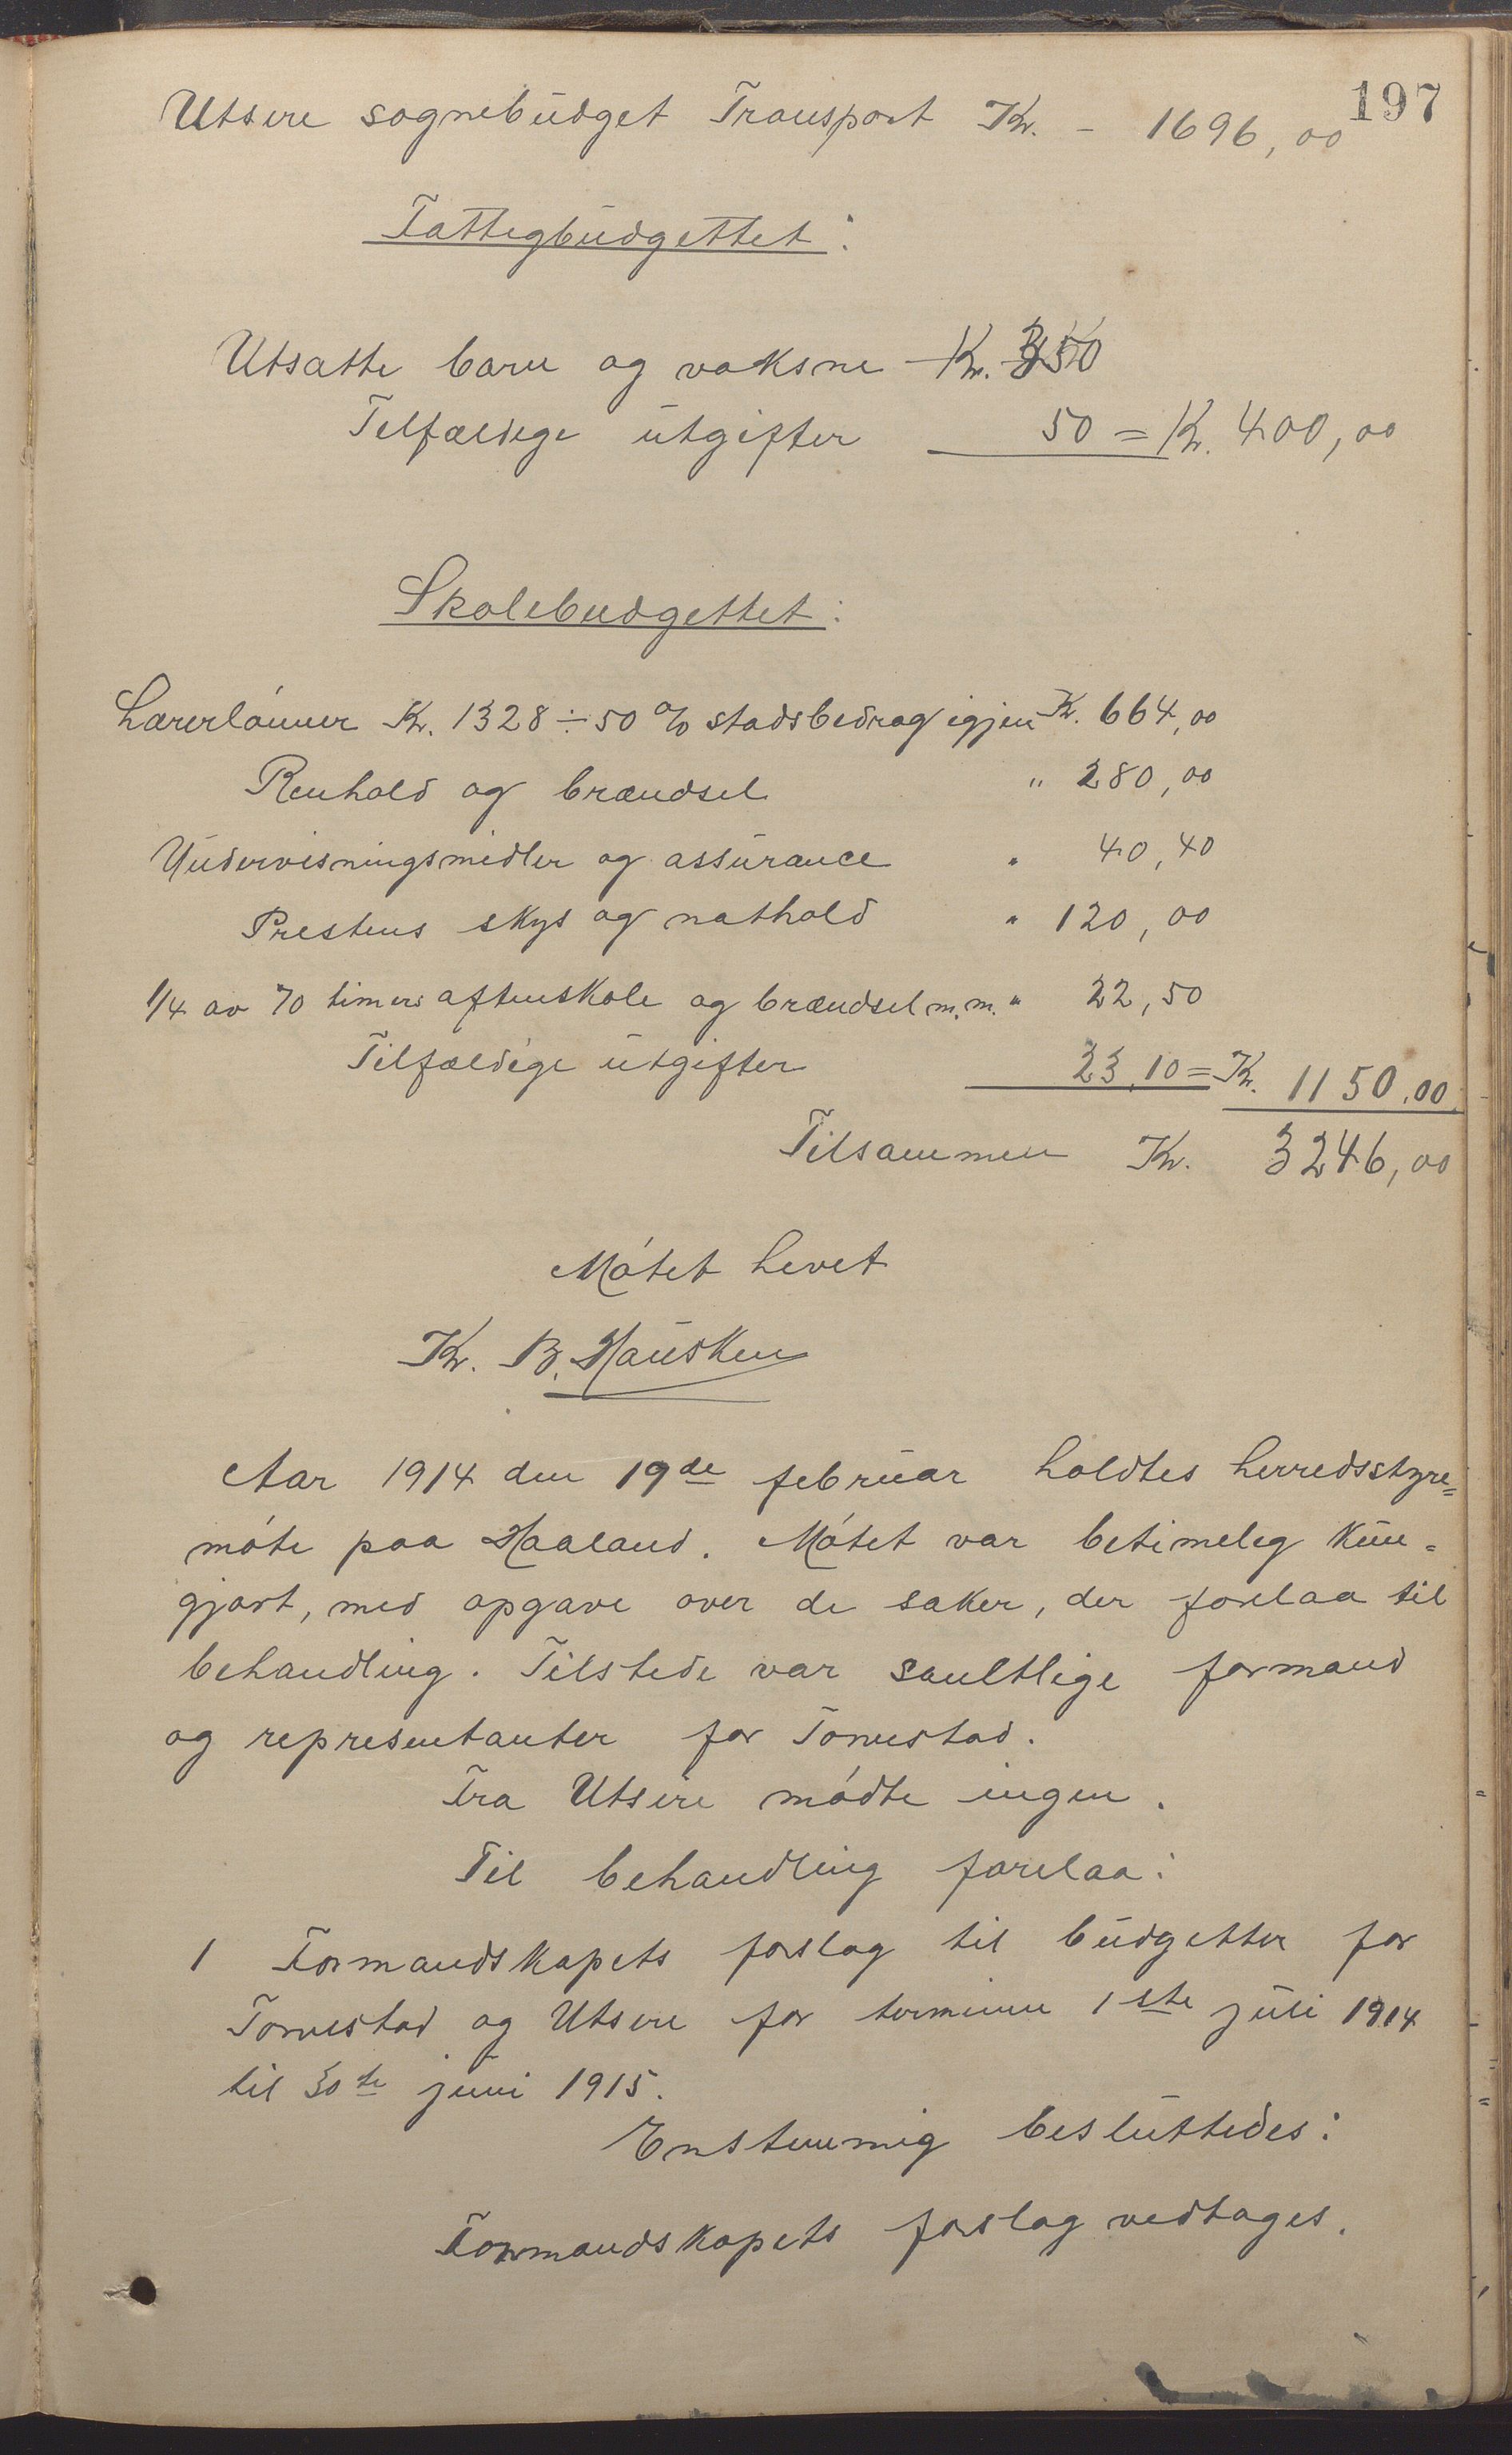 197
Utsire sognebudget Transport Kr. - 1696,00
Fattigbudgettet:
Utsatte barn og voksne Kr. 350
Tilfældige utgifter 50 = Kr. 400,00
Skolebudgettet:
Lærerlønner Kr. 1328 ÷ 50 % stadsbedrag igjen Kr. 664,00
Renhold og brændsel " 280,00
Undervisningsmidler og assurance " 40,40
Prestens skys og nathold " 120,00
1/4 av 70 timers aftenskole og brændsel m.m. " 22,50
Tilfældige utgifter 23,10 = Kr. 1150,00
Tilsammen Kr. 3246,00
Møtet hevet
Kr. B. Hausken
Aar 1914 den 19de februar holdtes herredsstyre=
møte paa Haaland. Møtet var betimelig kun=
gjort, med opgave over de saker, der forelaa til
behandling. Tilstede var samtlige formænd
og representanter for Torvestad.
Fra Utsire mødte ingen.
Til behandling forelaa:
1 Formandskapets forslag til budgetter for
Torvestad og Utsire for terminen 1ste juli 1914
til 30te juni 1915.
Enstemmig besluttedes:
Formandskapets forslag vedtages.